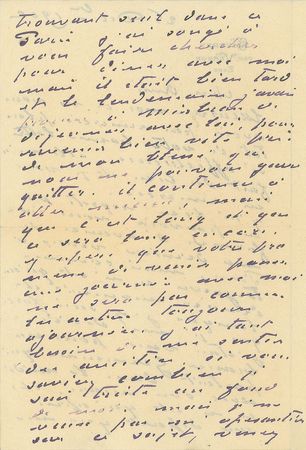 trouvant seul dans ce
Paris j'ai songé à
vous faire chercher
pour dîner avec moi
mais il était bien tard
et le lendemain j'avais
promis à Mirbeau de
déjeuner avec lui pour
revenir bien vite près
de mon blessé que
nous ne pouvons guère
quitter. il continue à
aller mieux, mais
que c'est long et que
ce sera long encore.
j'espère que votre pro
messe de venir passer
une journée avec moi
ne sera pas comme
les autres toujours
ajournée. j'ai tant
besoin de me sentir
des amitiés si vous
saviez combien je
suis triste au fond
de moi. mais je ne
veux pas m'apesantir
sur ce sujet, venez